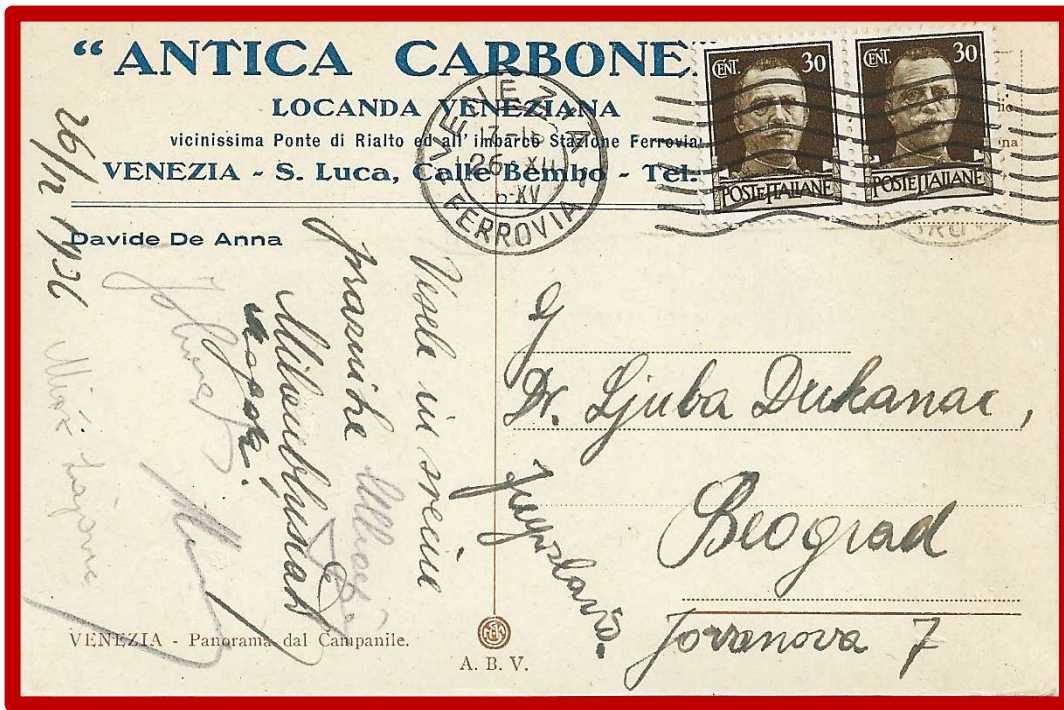 “ANTICA CARBONE
LOCANDA VENEZIANA
vicinissima Ponte di Rialto ed all' imbarco Stazione Ferrovia
VENEZIA - S. Luca, Calle Bembo - Tel.
Davide De Anna
26/12 1936
VENEZIA
17-18
26 XII
XV
FERROVIA
CENT. 30
POSTE ITALIANE
CENT. 30
POSTE ITALIANE
Vesele in srečne
praznike
G
Dr. Ljuba Dukanac,
Beograd
Jovanova 7
Jugoslavia
VENEZIA - Panorama dal Campanile.
A. B. V.